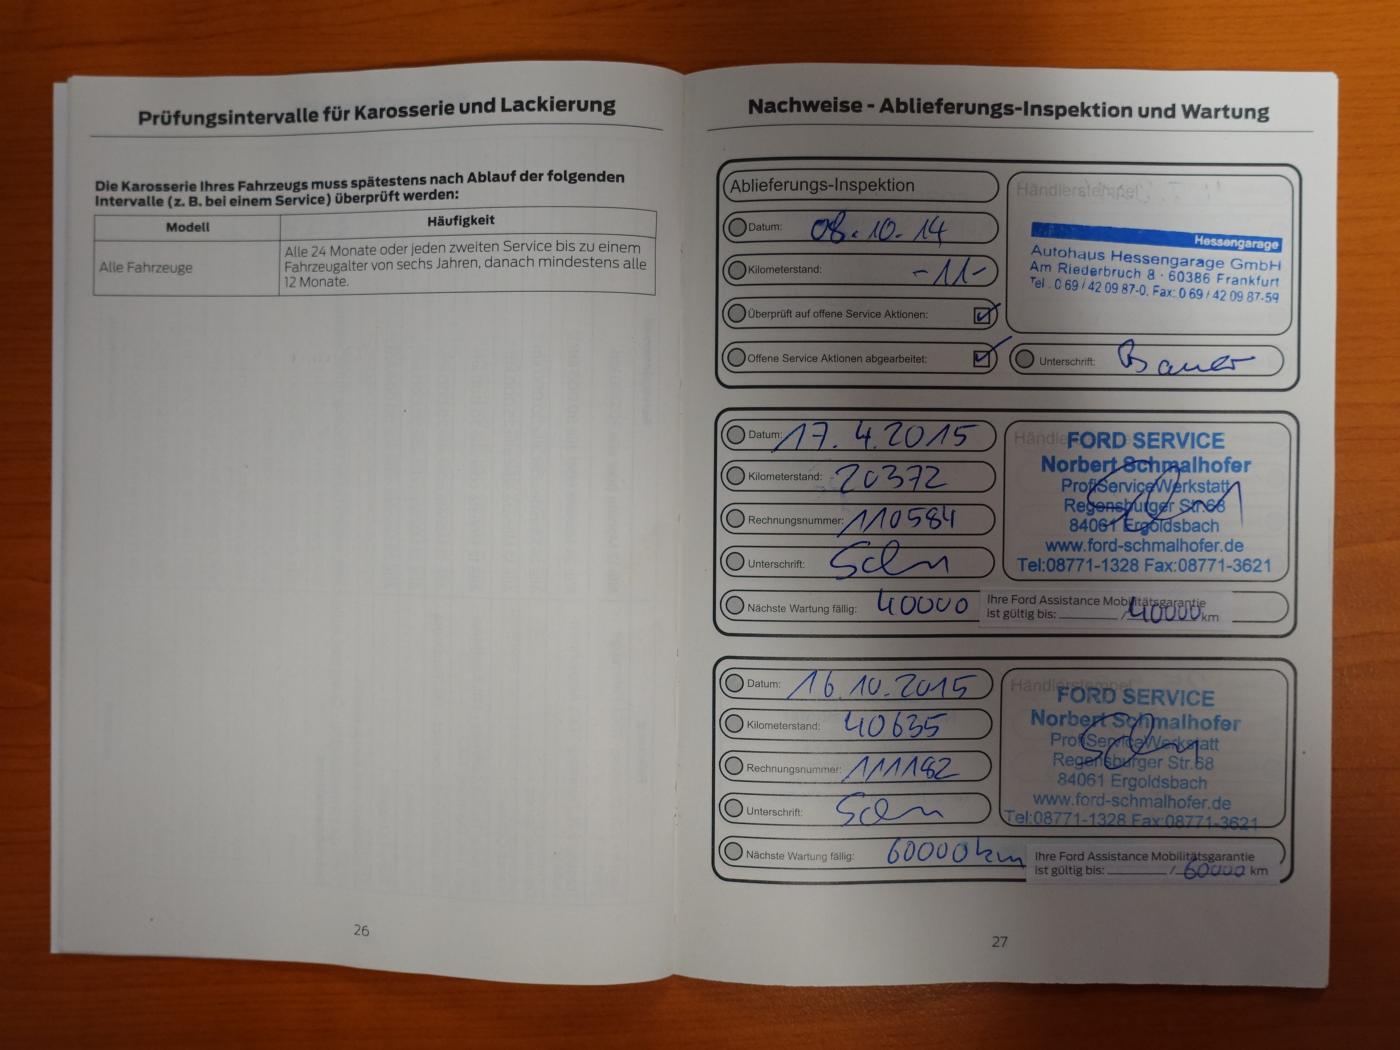 Prüfungsintervalle für Karosserie und Lackierung
Die Karosserie Ihres Fahrzeugs muss spätestens nach Ablauf der folgenden
Intervalle (z. B. bei einem Service) überprüft werden:
Modell
Häufigkeit
Alle Fahrzeuge
Alle 24 Monate oder jeden zweiten Service bis zu einem
Fahrzeugalter von sechs Jahren, danach mindestens alle
12 Monate.
26
Nachweise - Ablieferungs-Inspektion und Wartung
Ablieferungs-Inspektion
Datum: 08.10.14
Kilometerstand: -11-
Überprüft auf offene Service Aktionen:
Offene Service Aktionen abgearbeitet:
Händlerstempel
Hessengarage
Autohaus Hessengarage GmbH
Am Riederbruch 8 · 60386 Frankfurt
Tel. 0 69 / 42 09 87-0, Fax: 0 69 / 42 09 87-59
Unterschrift: Bauer
Datum: 17.4.2015
Kilometerstand: 20372
Rechnungsnummer: 110584
Unterschrift:
Nächste Wartung fällig: 40000
FORD SERVICE
Norbert Schmalhofer
ProfiServiceWerkstatt
Regensburger Str.68
84061 Ergoldsbach
www.ford-schmalhofer.de
Tel:08771-1328 Fax:08771-3621
Ihre Ford Assistance Mobilitätsgarantie
ist gültig bis: ________ / 40000 km
Datum: 16.10.2015
Kilometerstand: 40635
Rechnungsnummer: 111182
Unterschrift:
Nächste Wartung fällig: 60000 km
Händlerstempel
FORD SERVICE
Norbert Schmalhofer
ProfiServiceWerkstatt
Regensburger Str.68
84061 Ergoldsbach
www.ford-schmalhofer.de
Tel:08771-1328 Fax:08771-3621
Ihre Ford Assistance Mobilitätsgarantie
ist gültig bis: ________ / 60000 km
27